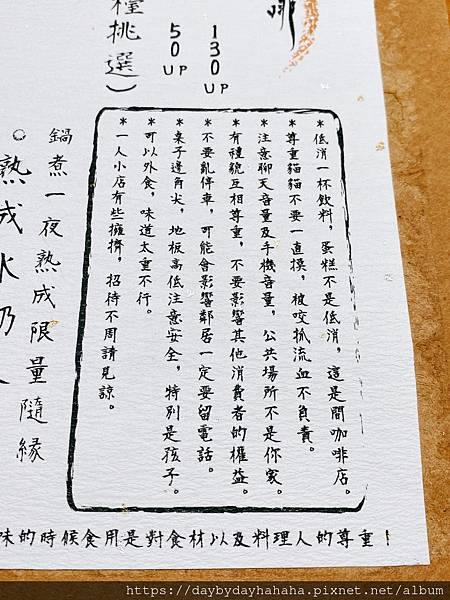 啡
130UP
50UP
檯挑選）
*低消一杯飲料，蛋糕不是低消，這是間咖啡店。
*尊重貓貓不要一直摸，被咬抓流血不負責。
*注意聊天音量及手機音量，公共場所不是你家。
*有禮貌互相尊重，不要影響其他消費者的權益。
*不要亂停車，可能會影響鄰居一定要留電話。
*桌子邊角尖，地板高低注意安全，特別是孩子。
*可以外食，味道太重不行。
*一人小店有些擁擠，招待不周請見諒。
鍋煮一夜熟成限量隨緣
。熟成冰奶
味的時候食用是對食材以及料理人的尊重！
https://daybydayhahaha.pixnet.net/album